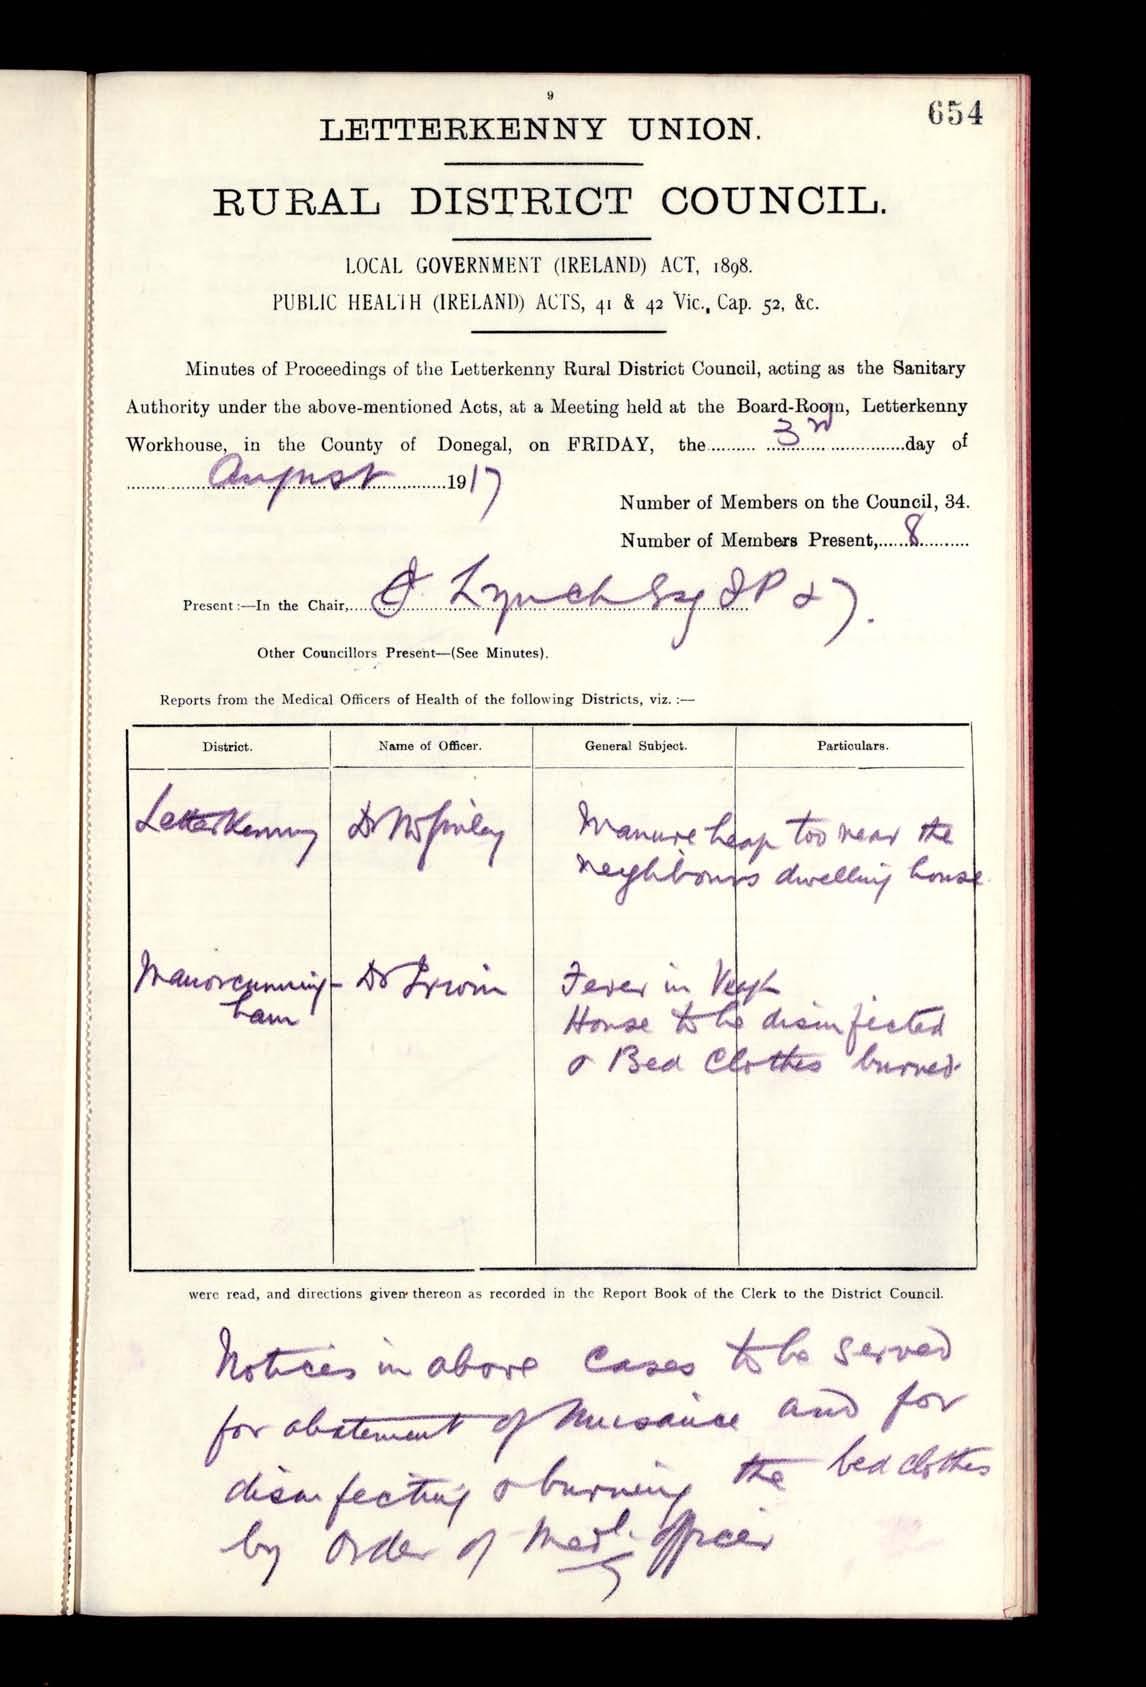 9
654
LETTERKENNY UNION.
RURAL DISTRICT COUNCIL.
LOCAL GOVERNMENT (IRELAND) ACT, 1898.
PUBLIC HEALTH (IRELAND) ACTS, 41 & 42 Vic., Cap. 52, &c.
Minutes of Proceedings of the Letterkenny Rural District Council, acting as the Sanitary
Authority under the above-mentioned Acts, at a Meeting held at the Board-Room, Letterkenny
Workhouse, in the County of Donegal, on FRIDAY, the 3rd day of
August 1917
Number of Members on the Council, 34.
Number of Members Present, 8
Present:—In the Chair, Lynch Esq JP
Other Councillors Present—(See Minutes).
Reports from the Medical Officers of Health of the following Districts, viz. :—
District. Name of Officer. General Subject. Particulars.
Letterkenny Dr Manure heap too near the
neighbours dwelling house
Manorcunning- Dr Irwin Fever in
ham House to be disinfected
& Bed Clothes burned
were read, and directions given thereon as recorded in the Report Book of the Clerk to the District Council.
Notices in above cases to be served
for abatement of Nuisance and for
disinfecting & burning the bed clothes
by order of Medl. officer